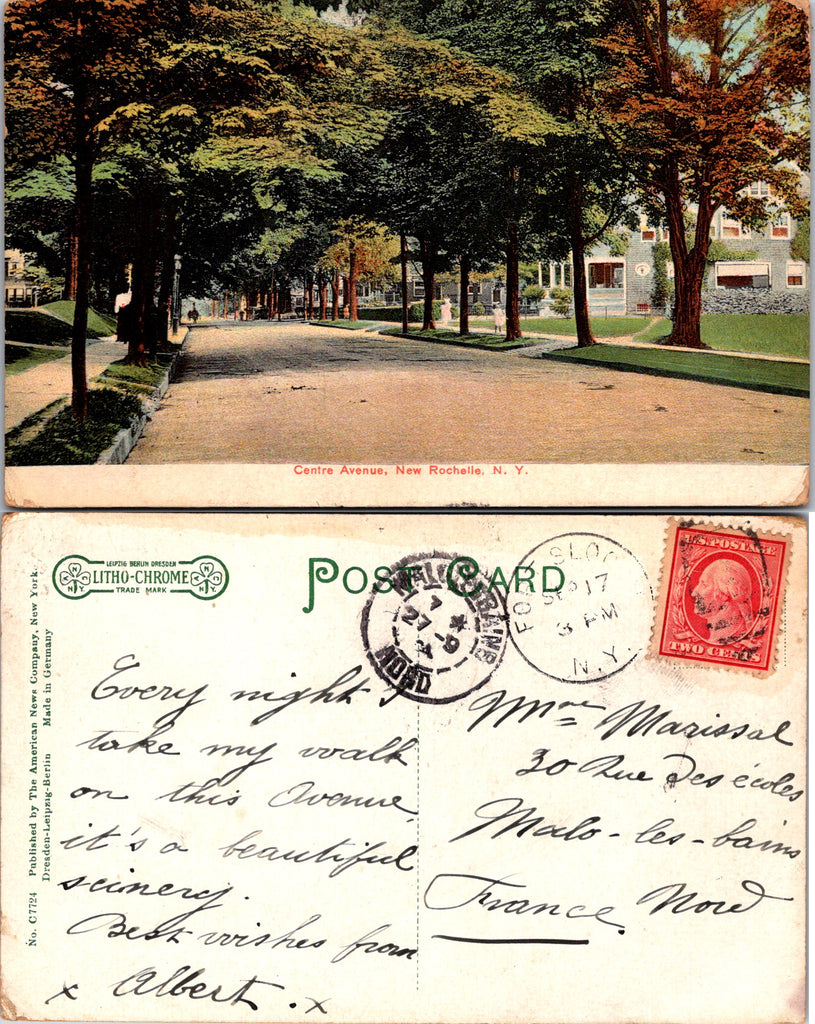 Centre Avenue, New Rochelle, N. Y.
LEIPZIG BERLIN DRESDEN
LITHO-CHROME
TRADE MARK
N Y
N.Y.
POST CARD
No. C7724 Published by The American News Company, New York.
Dresden-Leipzig-Berlin Made in Germany
SEP 17
3 PM
N.Y.
BAINS
7 *
27 -9
NORD
U.S. POSTAGE
TWO CENTS
Every night I
take my walk
on this Avenue,
it's a beautiful
scinery.
Best wishes from
x Albert. x
Mme Marissal
30 Rue Des écoles
Malo-les-bains
France. Nord